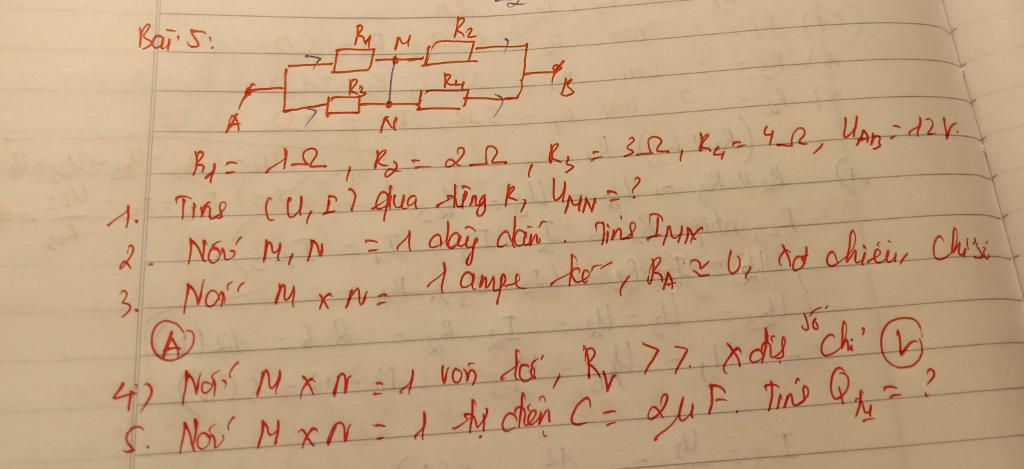 Bài 5:
R1 M R2
R3 R4
A N B
R1 = 1Ω, R2 = 2Ω, R3 = 3Ω, R4 = 4Ω, UAB = 12V.
1. Tính (U, I) qua từng R, UMN = ?
2. Nối M, N = 1 dây dẫn. Tính IMN
3. Nối M x N = 1 ampe kế, RA ≈ 0, xđ chiều, chỉ số
(A)
4) Nối M x N = 1 vôn kế, RV >>. xđịs số chỉ (V)
5. Nối M x N = 1 tụ điện C = 2μF. Tính Qtụ = ?